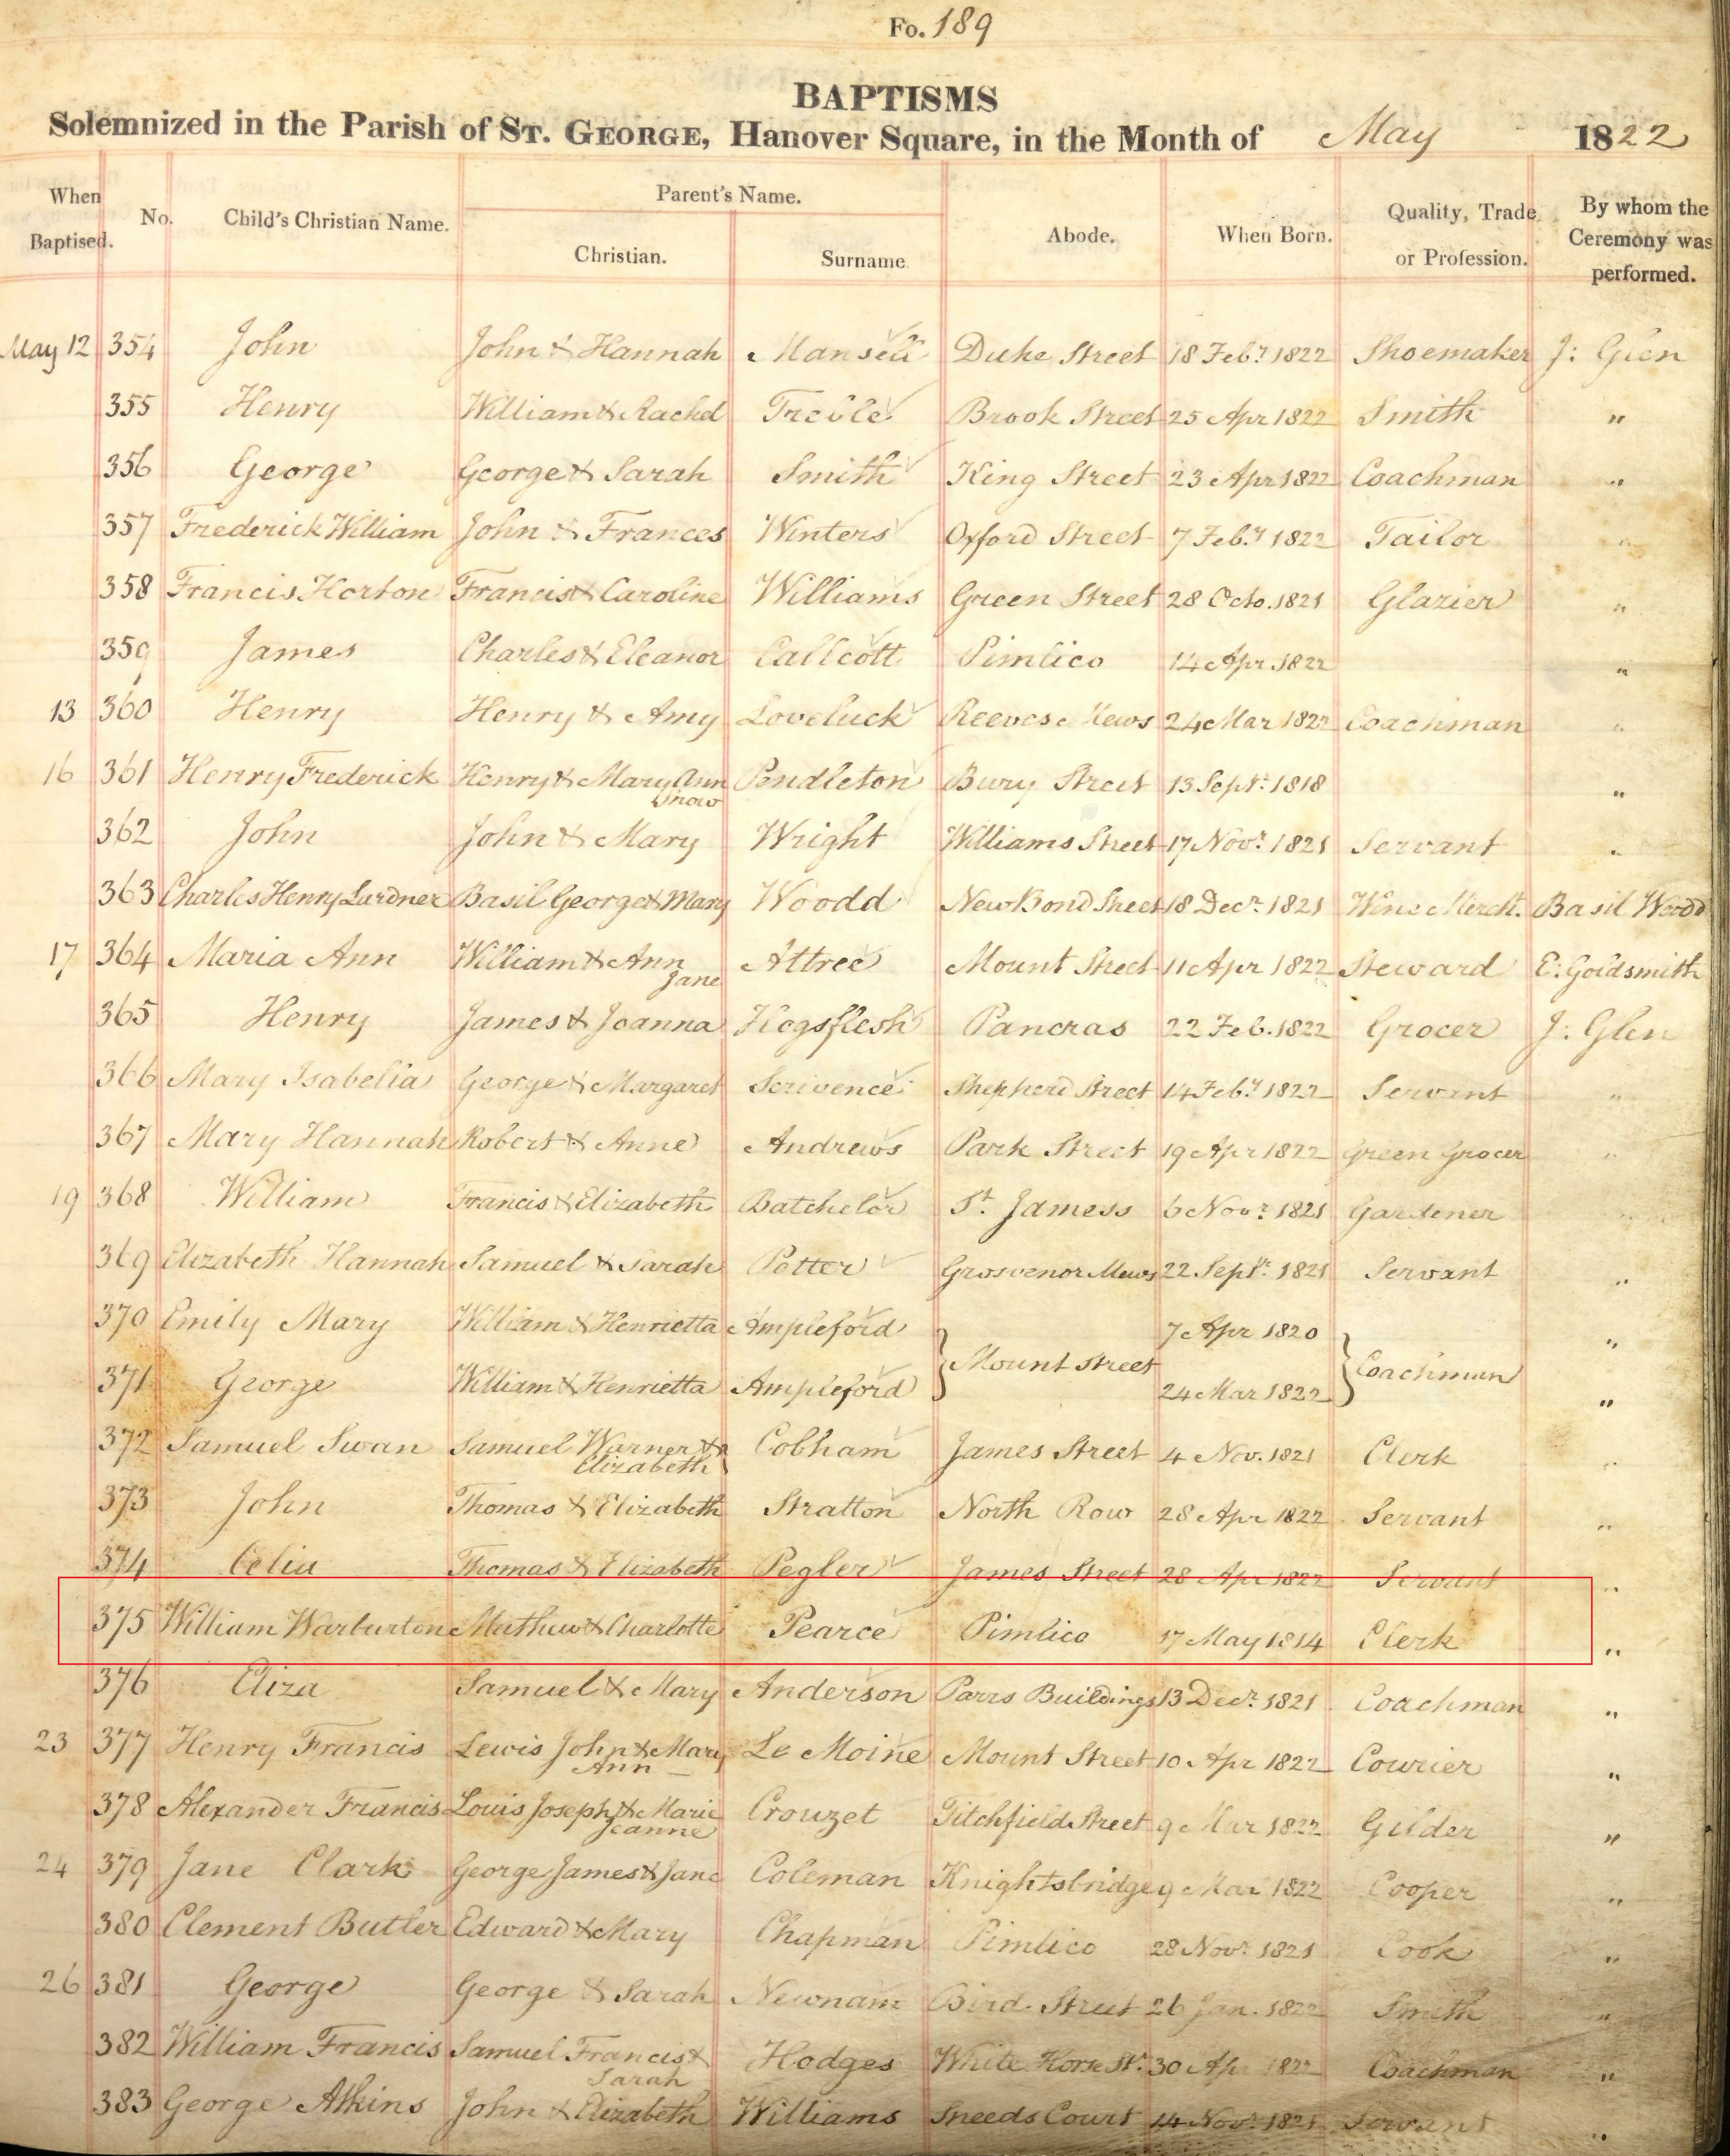 Fo. 189
BAPTISMS
Solemnized in the Parish of ST. GEORGE, Hanover Square, in the Month of May 1822
When Baptised. No. Child's Christian Name. Parent's Name. Christian. Surname. Abode. When Born. Quality, Trade or Profession. By whom the Ceremony was performed.
May 12 354 John John & Hannah Mansell Duke Street 18 Feby. 1822 Shoemaker J: Glen
355 Henry William & Rachel Treble Brook Street 25 Apr 1822 Smith "
356 George George & Sarah Smith King Street 23 Apr 1822 Coachman "
357 Frederick William John & Frances Winters Oxford Street 7 Feby. 1822 Tailor "
358 Francis Horton Francis & Caroline Williams Green Street 28 Octo. 1821 Glazier "
359 James Charles & Eleanor Callcott Pimlico 14 Apr 1822 "
13 360 Henry Henry & Amy Loveluck Reeves Mews 24 Mar 1822 Coachman "
16 361 Henry Frederick Henry & Mary Ann Snow Pendleton Bury Street 13 Sepr. 1818 "
362 John John & Mary Wright Williams Street 17 Novr. 1821 Servant "
363 Charles Henry Lardner Basil George & Mary Woodd New Bond Street 18 Decr. 1821 Wine Mercht. Basil Woodd
17 364 Maria Ann William & Ann Jane Attree Mount Street 11 Apr 1822 Steward E: Goldsmith
365 Henry James & Joanna Hogsflesh Pancras 22 Feb. 1822 Grocer J: Glen
366 Mary Isabella George & Margaret Scrivence Shepherd Street 14 Feby. 1822 Servant "
367 Mary Hannah Robert & Anne Andrews Park Street 19 Apr 1822 Green Grocer "
19 368 William Francis & Elizabeth Batchelor St. Jamess 6 Novr. 1821 Gardener "
369 Elizabeth Hannah Samuel & Sarah Potter Grosvenor Mews 22 Sepr. 1821 Servant "
370 Emily Mary William & Henrietta Ampleford 7 Apr 1820 "
Mount Street Coachman
371 George William & Henrietta Ampleford 24 Mar 1822 "
372 Samuel Swan Samuel Warner & Elizabeth Cobham James Street 4 Nov. 1821 Clerk "
373 John Thomas & Elizabeth Stratton North Row 28 Apr 1822 Servant "
374 Celia Thomas & Elizabeth Pegler James Street 28 Apr 1822 Servant "
375 William Warburton Mathew & Charlotte Pearce Pimlico 17 May 1814 Clerk "
376 Eliza Samuel & Mary Anderson Parrs Buildings 13 Decr. 1821 Coachman "
23 377 Henry Francis Lewis John & Mary Ann Le Moine Mount Street 10 Apr 1822 Courier "
378 Alexander Francis Louis Joseph & Marie Jeanne Crouzet Titchfield Street 9 Mar 1822 Gilder "
24 379 Jane Clark George James & Jane Coleman Knightsbridge 9 Mar 1822 Cooper "
380 Clement Butler Edward & Mary Chapman Pimlico 28 Novr. 1821 Cook "
26 381 George George & Sarah Newnam Bird Street 26 Jan. 1822 Smith "
382 William Francis Samuel Francis & Sarah Hodges White Horse St. 30 Apr 1822 Coachman "
383 George Atkins John & Elizabeth Williams Sneeds Court 14 Novr. 1821 Servant "